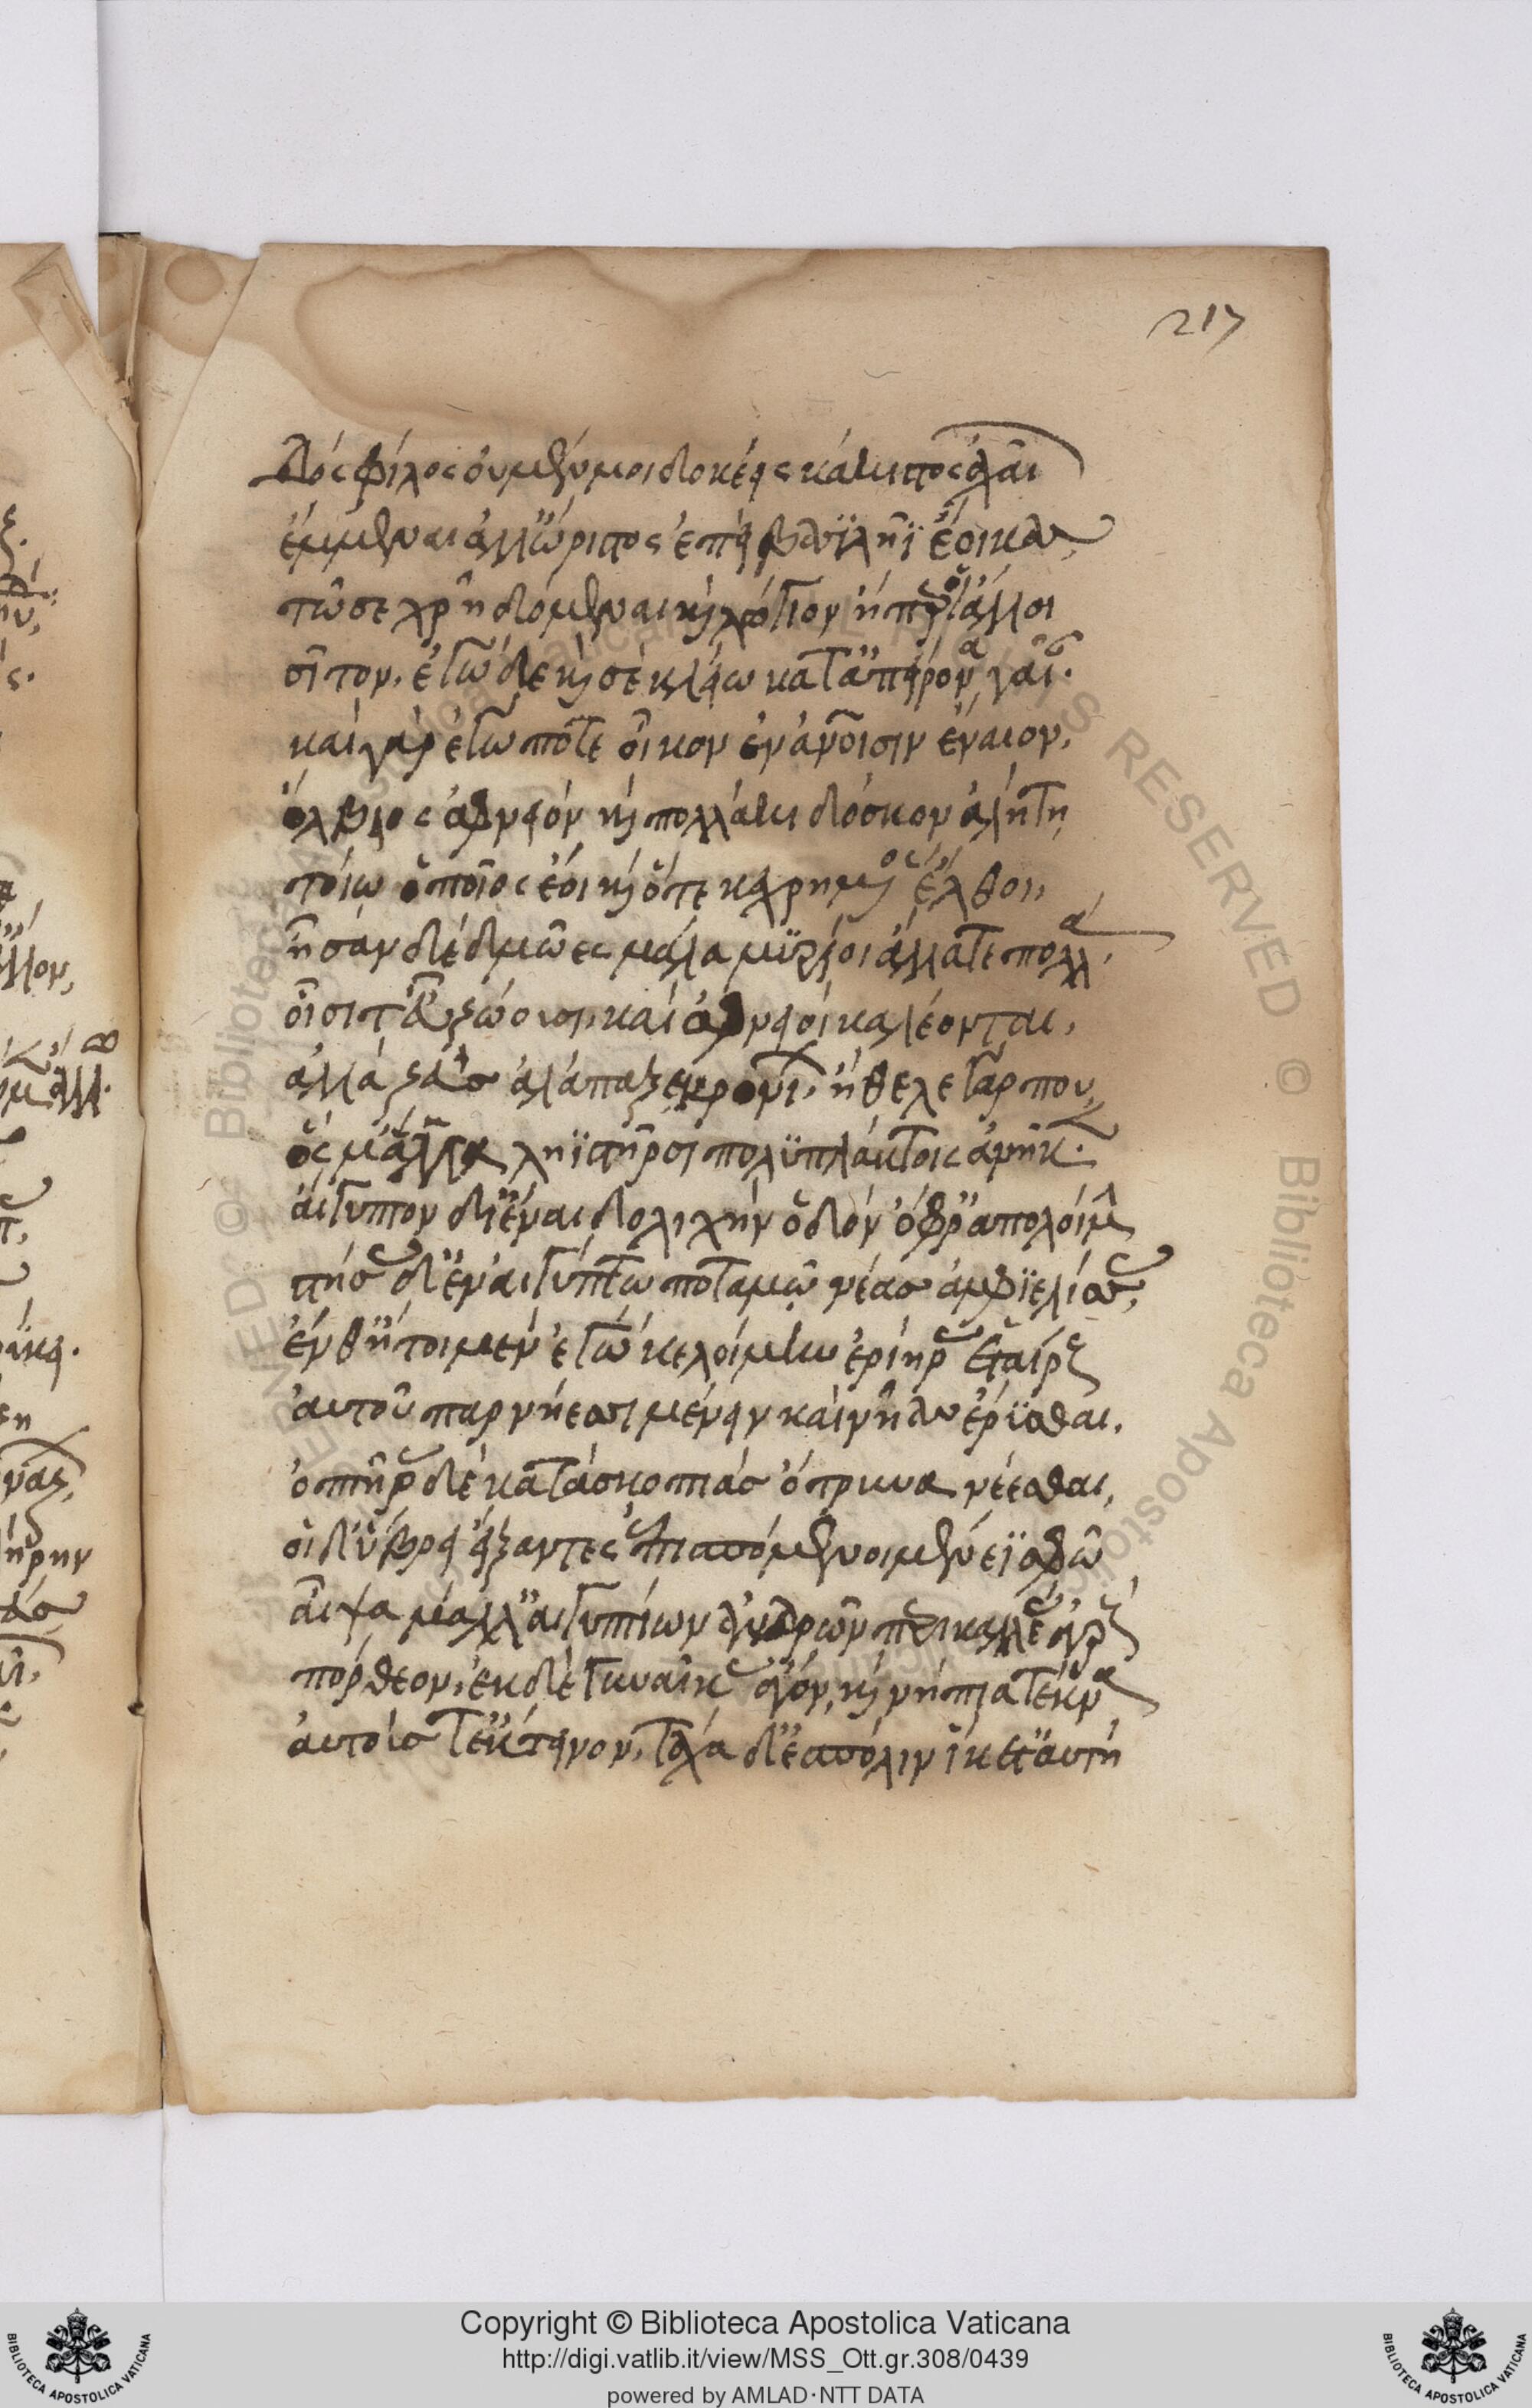 217
Δός φίλος οὐ μέν μοι δοκέεις κάκιστος ἀχαιῶν
ἔμμεναι ἀλλ' ὤριστος ἐπεὶ βασιλῆϊ ἔοικας,
τῶ σε χρὴ δόμεναι καὶ λώϊον ἠέπερ ἄλλοι
σίτου, ἐγὼ δέ κέ σε κλείω κατ' ἀπείρονα γαῖαν.
καὶ γὰρ ἐγώ ποτε οἶκον ἐν ἀνοισιν ἔναιον,
ὄλβιος ἀφνειὸν καὶ πολλάκι δόσκον ἀλήτῃ
τοίω ὁποῖος ἔοι καὶ ὅτε κεχρημένος ἔλθοι,
ἦσαν δὲ δμῶες μάλα μυρίοι ἄλλα τε πολλά,
οἷσί τ' εὖ ζώουσι, καὶ ἀφνειοὶ καλέονται,
ἀλλὰ ζεὺς ἀλάπαξε κρονίων, ἤθελε γάρ που,
ὅς μ' ἅμα ληϊστῆρσι πολυπλάκτοις ἀνῆκεν.
αἴγυπτον δ' ἰέναι δολιχὴν ὁδὸν ὄφρ' ἀπολοίμην
στῆσα δ' ἐν αἰγύπτω ποταμῷ νέας ἀμφιελίσσας,
ἔνθ' ἤτοι μὲν ἐγὼ κελόμην ἐρίηρας ἑταίρους
αὐτοῦ παρ νήεσσι μένειν καὶ νῆας ἔρυσθαι,
ὀπτῆρας δὲ κατὰ σκοπιὰς ὄτρυνα νέεσθαι,
οἱ δ' ὕβρει εἴξαντες ἐπισπόμενοι μένεϊ σφῶ
αἶψα μάλ' αἰγυπτίων ἀνδρῶν περικαλλέας ἀγρούς
πόρθεον, ἐκ δὲ γυναῖκας ἄγον, καὶ νήπια τέκνα
αὐτούς τ' ἔκτεινον, τάχα δ' ἐς πόλιν ἵκετ' ἀϋτή
Copyright © Biblioteca Apostolica Vaticana
http://digi.vatlib.it/view/MSS_Ott.gr.308/0439
powered by AMLAD·NTT DATA